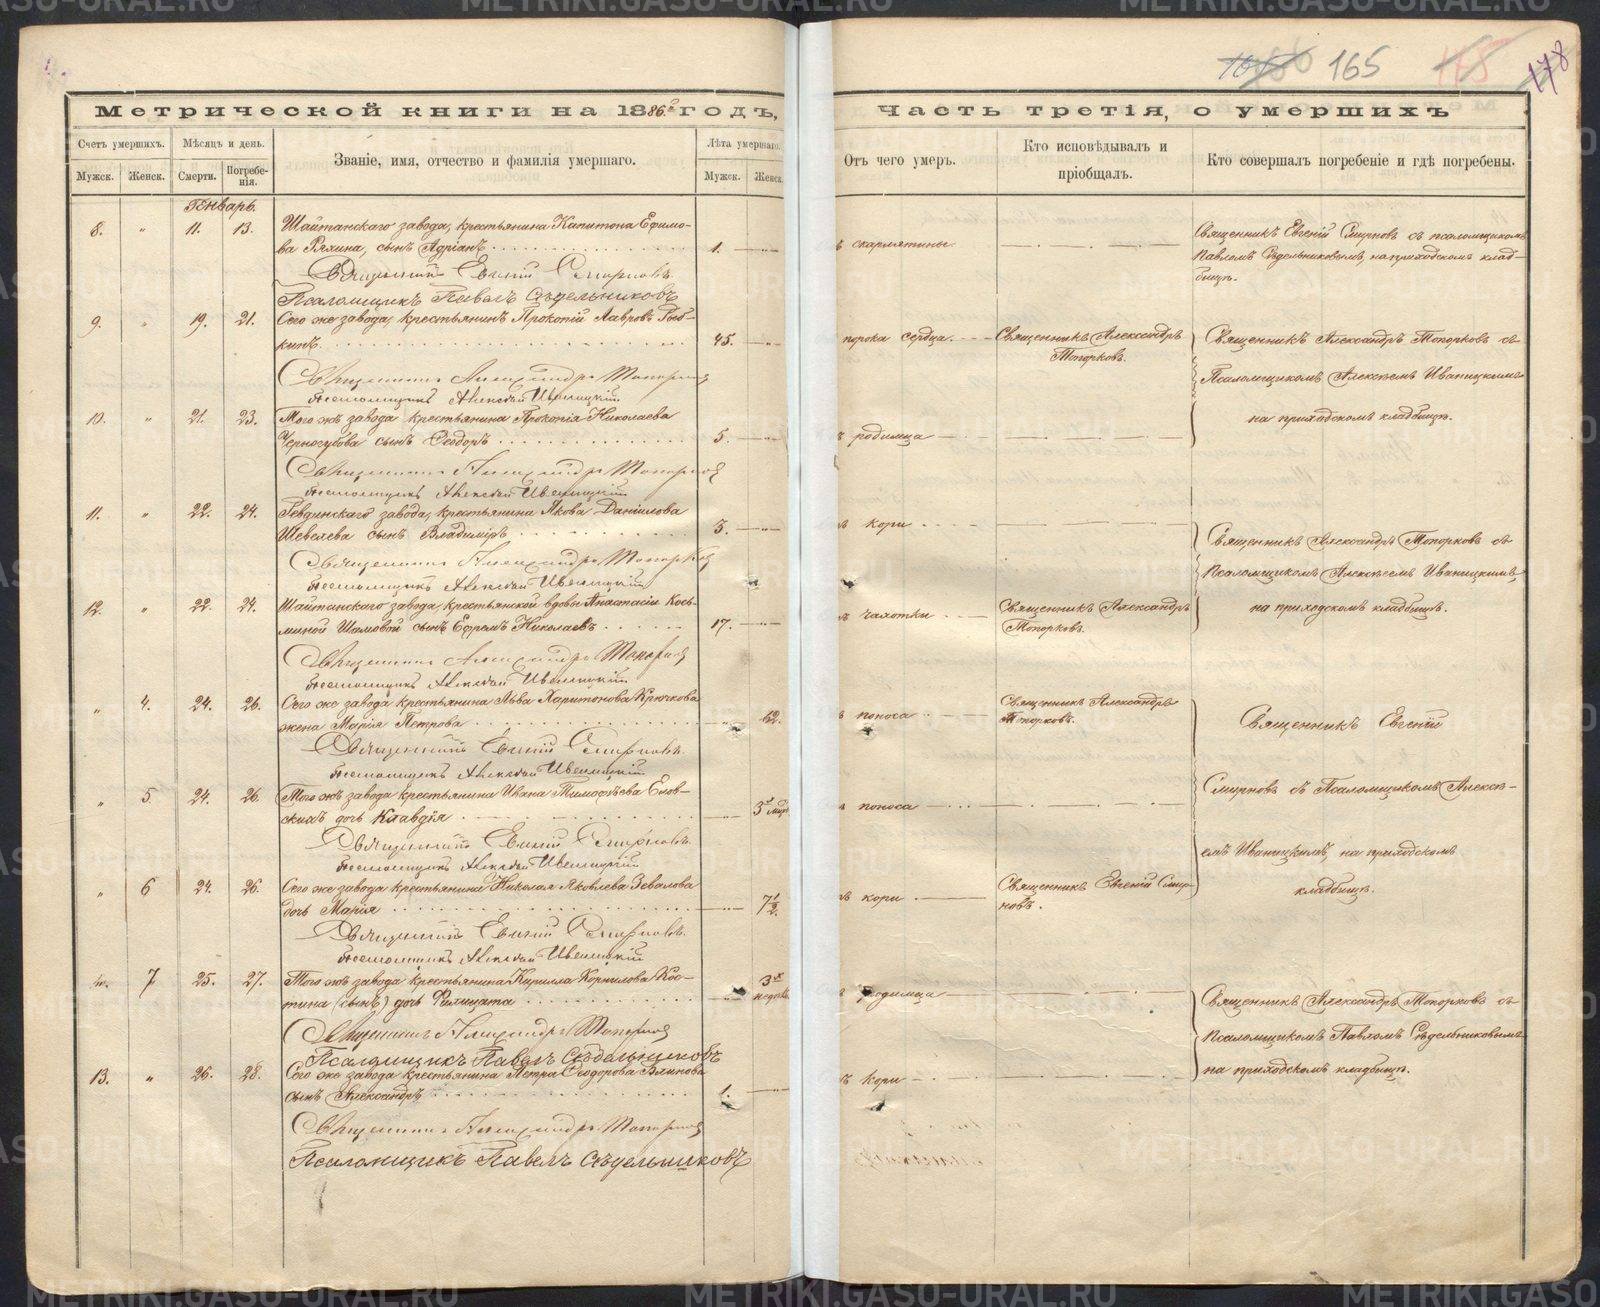 165
178
Метрической книги на 1886й годъ,
Часть третія, о умершихъ
Счетъ умершихъ.
Мѣсяцъ и день.
Званіе, имя, отчество и фамилія умершаго.
Лѣта умершаго.
Мужск.
Женск.
Смерти.
Погребе-
нія.
Мужск.
Женск.
Отъ чего умеръ.
Кто исповѣдывалъ и
пріобщалъ.
Кто совершалъ погребеніе и гдѣ погребены.
Январь.
8. " 11. 13. Шайтанскаго завода, крестьянина Капитона Ефимо-
ва сынъ Адріанъ 1. скарлятины.
Священникъ Евгеній Смирновъ съ псаломщикомъ
Павломъ Сѣдельниковымъ, на приходскомъ клад-
бищѣ.
Священникъ Евгеній Смирновъ.
Псаломщикъ Павелъ Сѣдельниковъ
9. " 19. 21. Сего же завода, крестьянинъ Прокопій Лавровъ
45. порока сердца. Священникъ Александръ
Топорковъ.
Священникъ Александръ Топорковъ съ
Псаломщикомъ Алексѣемъ Иваницкимъ
на приходскомъ кладбищѣ.
Священникъ Александръ Топорковъ
Псаломщикъ Алексѣй Иваницкій
10. " 21. 23. Того жъ завода крестьянина Прокопія Николаева
Чернозубова сынъ Ѳеодоръ 5. родимца
Священникъ Александръ Топорковъ
Псаломщикъ Алексѣй Иваницкій
11. " 22. 24. Ревдинскаго завода, крестьянина Якова Даніилова
Шевелева сынъ Владиміръ 3. кори
Священникъ Александръ Топорковъ съ
Псаломщикомъ Алексѣемъ Иваницкимъ,
на приходскомъ кладбищѣ.
Священникъ Александръ Топорковъ
Псаломщикъ Алексѣй Иваницкій
12. " 22. 24. Шайтанскаго завода, крестьянской вдовы Анастасіи Кось-
миной Шамовой сынъ Ефремъ Николаевъ 17. чахотки
Священникъ Александръ
Топорковъ.
Священникъ Александръ Топорковъ
Псаломщикъ Алексѣй Иваницкій
" 4. 24. 26. Сего же завода крестьянина Льва Харитонова Крючкова
жена Марія Петрова 62. поноса
Священникъ Александръ
Топорковъ.
Священникъ Евгеній
Смирновъ съ Псаломщикомъ Алексѣ-
емъ Иваницкимъ, на приходскомъ
кладбищѣ.
Священникъ Евгеній Смирновъ.
Псаломщикъ Алексѣй Иваницкій
" 5. 24. 26. Того жъ завода крестьянина Ивана Тимофѣева
дочь Клавдія поноса
Священникъ Евгеній Смирновъ.
Псаломщикъ Алексѣй Иваницкій
" 6 24. 26. Сего же завода крестьянина Николая Яковлева Зевалова
дочь Марія 7 1/2. кори
Священникъ Евгеній Смир-
новъ.
Священникъ Евгеній Смирновъ.
Псаломщикъ Алексѣй Иваницкій
" 7 25. 27. Того жъ завода крестьянина Кирилла Корнилова Кос-
тина (сынъ) дочь Филицата 3х недѣль родимца
Священникъ Александръ Топорковъ съ
Псаломщикомъ Павломъ Сѣдельниковымъ
на приходскомъ кладбищѣ.
Священникъ Александръ Топорковъ
Псаломщикъ Павелъ Сѣдельниковъ
13. " 26. 28. Сего же завода крестьянина Петра Ѳеодорова
сынъ Александръ 1. кори
Священникъ Александръ Топорковъ
Псаломщикъ Павелъ Сѣдельниковъ
METRIKI.GASO-URAL.RU